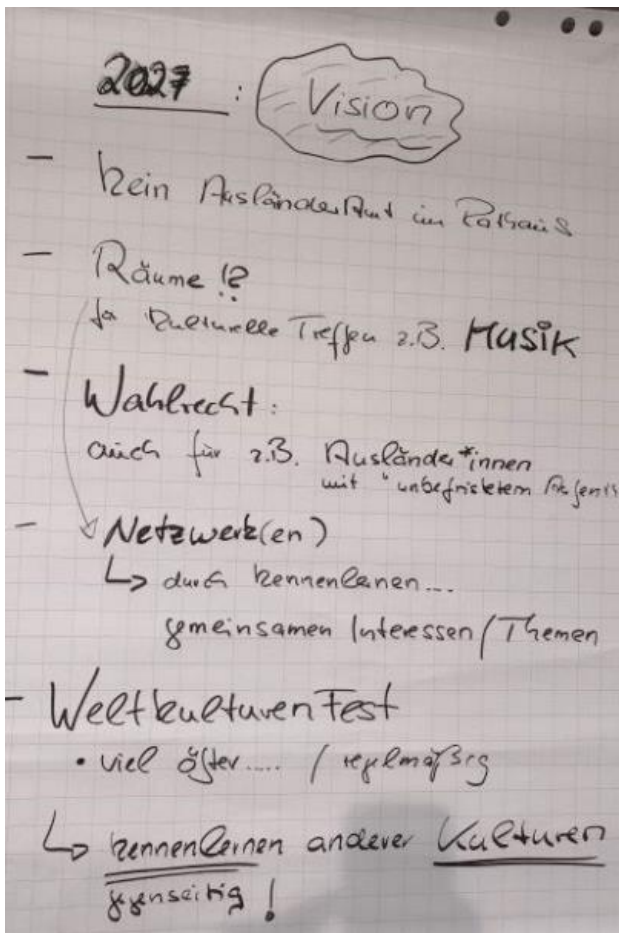 2027 : Vision
- kein AusländerAmt im Rathaus
- Räume !?
für kulturelle Treffen z.B. MUSiK
- Wahlrecht :
auch für z.B. Ausländer*innen
mit "unbefristetem
- Netzwerk(en)
↳ durch kennenlernen...
gemeinsamen Interessen / Themen
- WeltkulturenFest
• viel öfter..... / regelmäßig
↳ kennenlernen anderer Kulturen
gegenseitig !